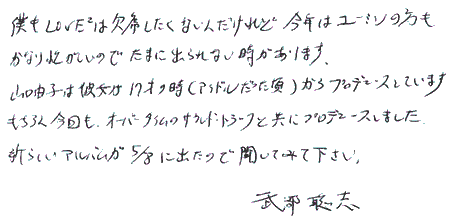 僕もLOVE²は欠席したくないんだけれど 今年はユーミンの方も
かなり忙がしいのでたまに出られない時があります。
山口由子は彼女が17才の時(アイドルだった頃)からプロデュースしています
もちろん今回も、オーバータイムのサウンド・トラックと共にプロデュースしました
新らしいアルバムが5/8に出たので聞いてみて下さい。
武部聡志